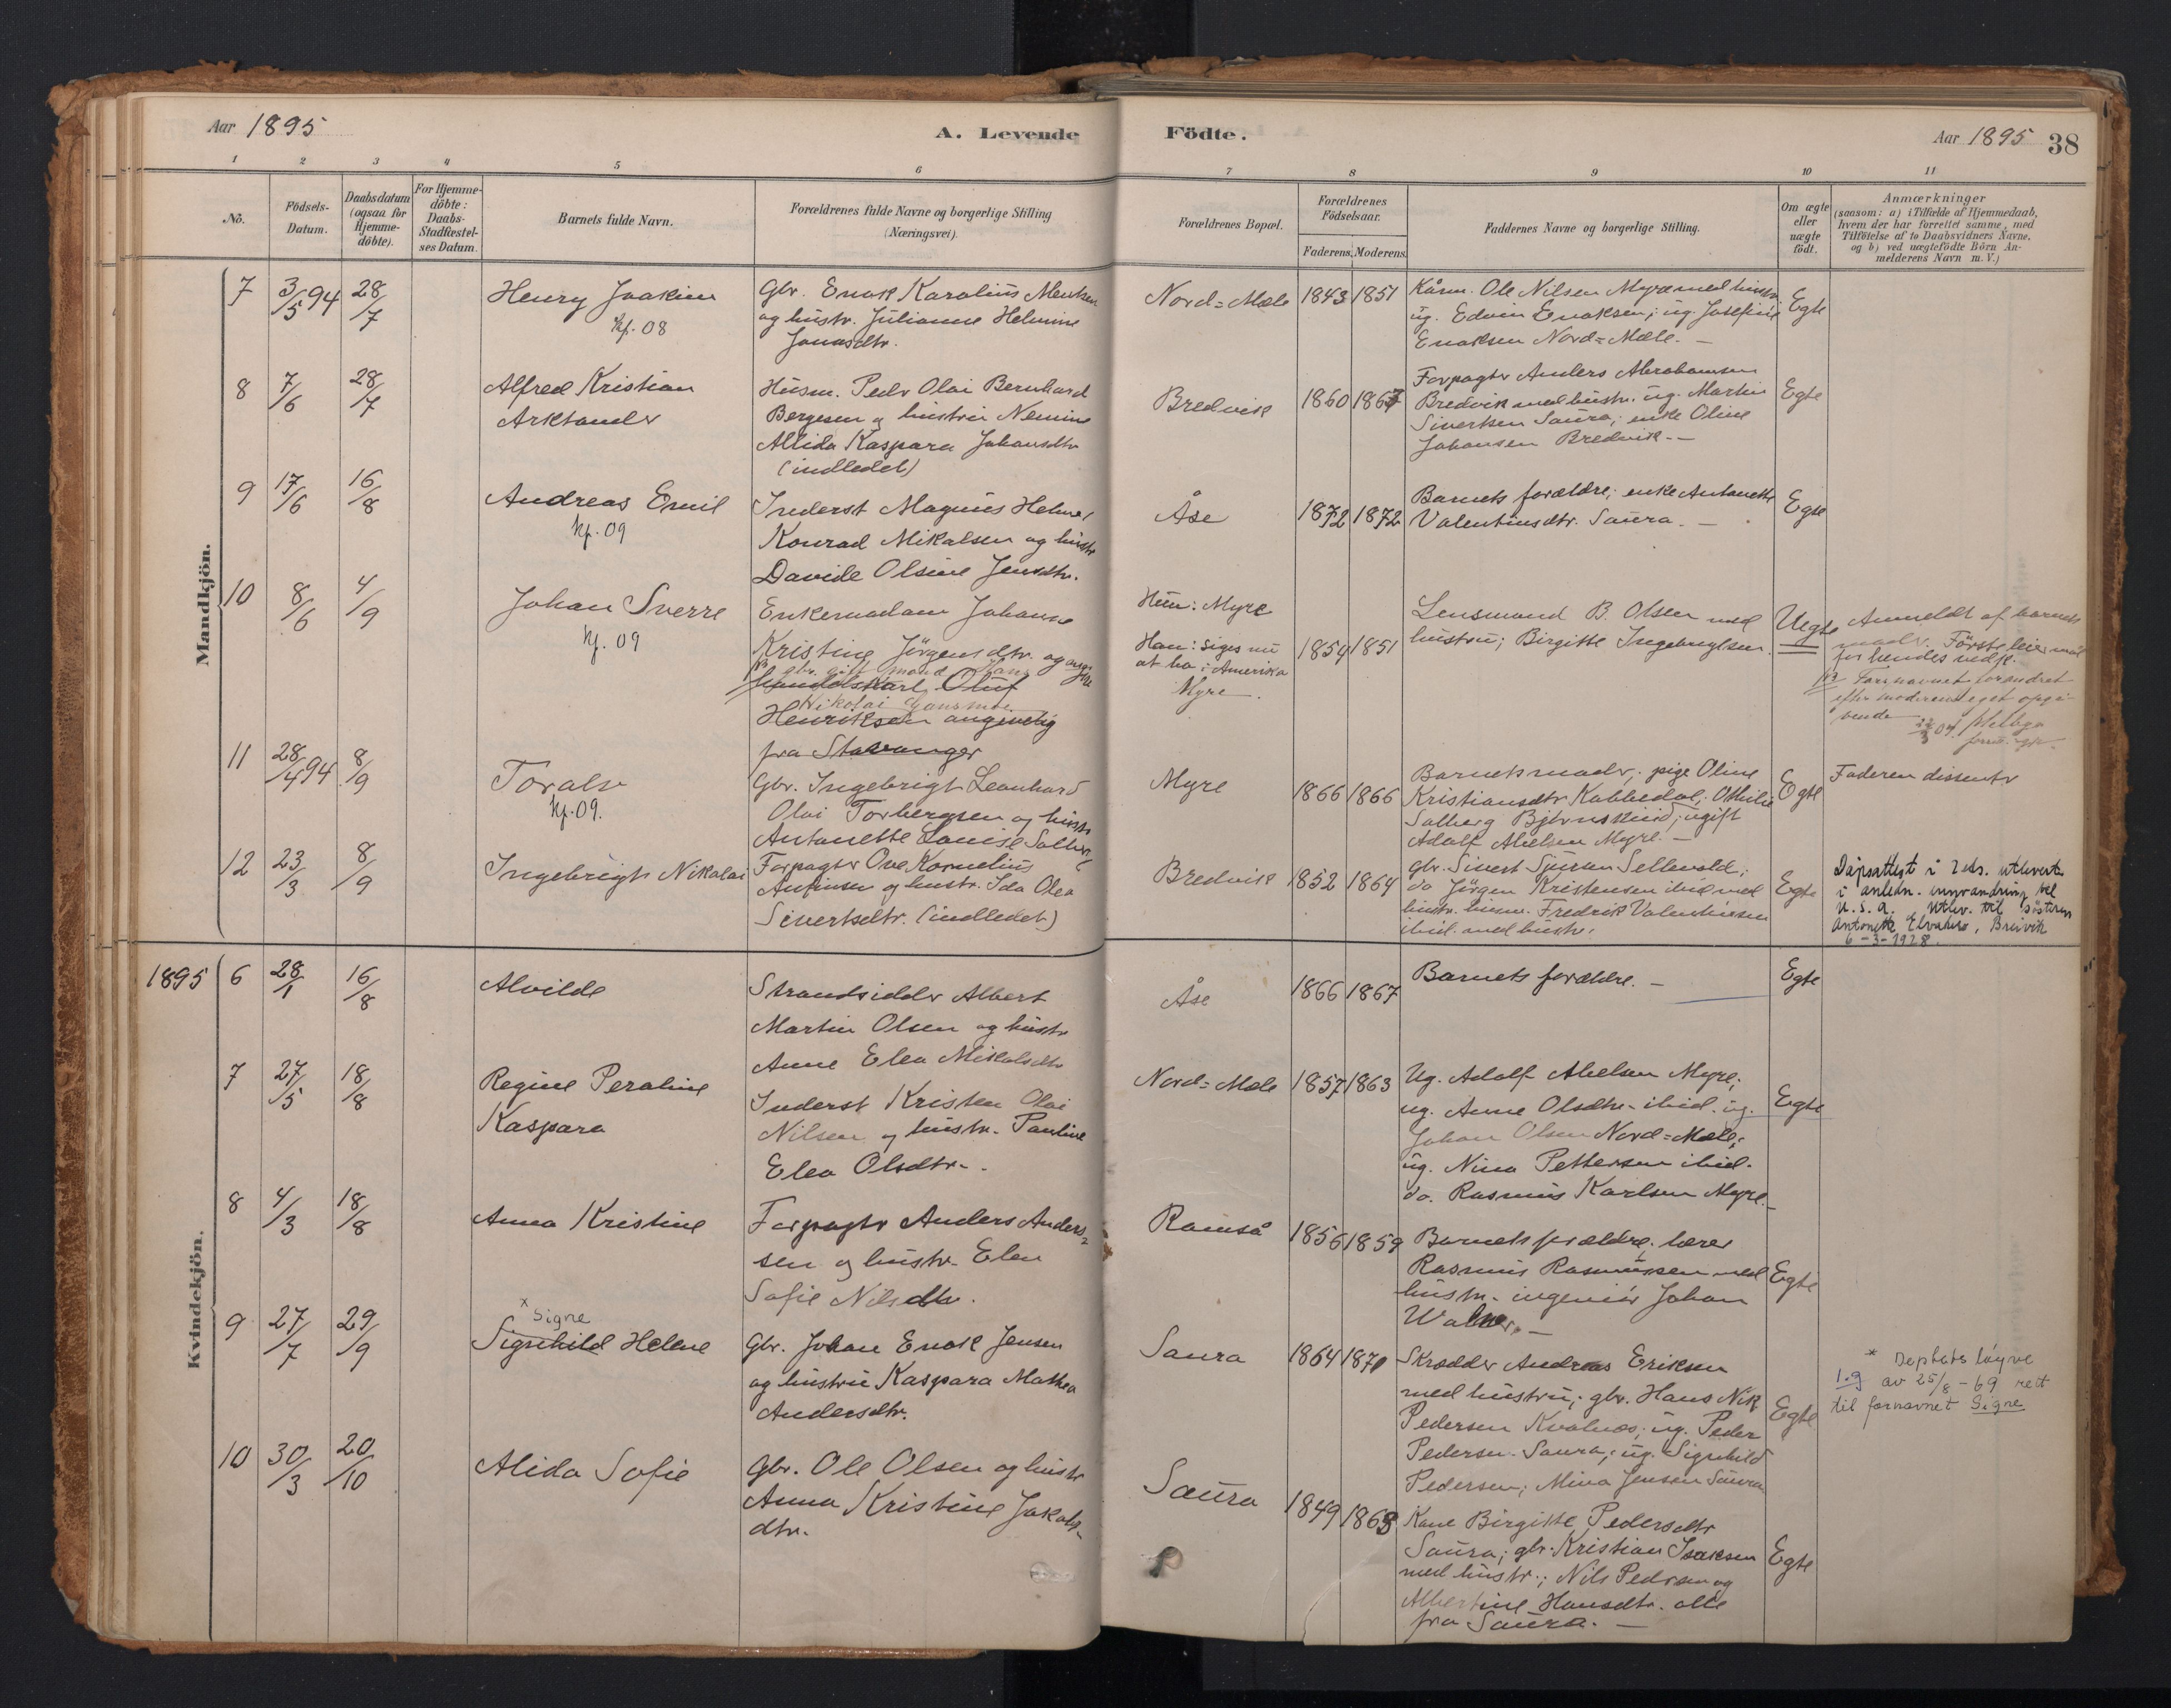 Aar 1895
A. Levende Födte.
Aar 1895 38
1 2 3 4 5 6 7 8 9 10 11
No.
Födsels-
Datum.
Daabsdatum
(ogsaa for
Hjemme-
döbte).
For Hjemme-
döbte:
Daabs-
Stadfæstel-
ses Datum.
Barnets fulde Navn.
Forældrenes fulde Navne og borgerlige Stilling
(Næringsvei).
Forældrenes Bopæl.
Forældrenes
Födselsaar.
Faderens. Moderens.
Faddernes Navne og borgerlige Stilling.
Om ægte
eller
uægte
födt.
Anmærkninger
(saasom: a) i Tilfælde af Hjemmedaab,
hvem der har forrettet samme, med
Tilföielse af to Daabsvidners Navne,
og b) ved uægtefödte Börn An-
melderens Navn m. V.)
Mandkjön.
7 3/5 94 28/7
Henry Joakim
kf. 08
Gbr. Enok Karolius
og hustr. Julianne Helmine
Jonasdtr.
Nord=Mæle 1843 1851
Kårm. Ole Nilsen Myre med hustr
ug. Edvin Enoksen; ug. Josefine
Enoksen Nord=Mæle. —
Egte
8 7/6 28/7
Alfred Kristian
Arktander
Husm. Peder Olai Bernhard
Bergesen og hustru Nemine
Allida Kaspara Johansdtr
(indledet)
Bredvik 1860 1867
Forpagter Anders Abrahamsen
Bredvik med hustr. ug. Martin
Sivertsen Saura; enke Oline
Johansen Bredvik. —
Egte
9 17/6 16/8
Andreas Emil
kf. 09
Inderst Magnus Helmer
Konrad Mikalsen og hustr
Davide Olsine Jensdtr.
Åse 1872 1872
Barnets forældre; enke Antonette
Valentinsdtr. Saura. —
Egte
10 8/6 4/9
Johan Sverre
kf. 09
Enkemadam Johanne
Kristine Jörgensdtr. og
gbr. gift mand Hans
Handelskarl Oluf
Nikolai
Henriksen angivelig
fra Stavanger
Hun: Myre
Han: siges nu
at bo i Amerika
Myre
1859 1851
Lensmand B. Olsen med
hustru; Birgitte
Uegte
Anmeldt af barnets
moder. Förste leiermål
for hendes vedk.
NB Farsnavnet forandret
efter moderens eget opgi-
vende
11 28/4 94 8/9
Toralv
kf. 09.
Gbr. Ingebrigt Leonhard
Olai Torbergsen og hustr
Antonette Louise
Myre 1866 1866
Barnets moder; pige Oline
Kristiansdtr. Kobbedal; Othilie
Solberg Björnskind; ugift
Adolf Abelsen Myre. —
Egte
Faderen dissenter
12 23/3 8/9
Ingebrigt Nikolai
Forpagter Ove Kornelius
Anfinsen og hustr. Ida Olea
Sivertsdtr. (indledet)
Bredvik 1852 1864
gbr. Sivert Sellevold;
do Jörgen Kristensen ibid med
hustr. husm. Fredrik Valentinsen
ibid. med hustr.
Egte
Dåpsattest i 2 eks. utlevert
i anledn. innvandring til
U.S.A. Utlev. til søsteren
Antonette, Breivik
6-3-1928.
Kvindekjön.
1895 6 28/1 16/8
Alvilde
Strandsidder Albert
Martin Olsen og hustr
Anne Elea Mikalsdtr
Åse 1866 1867
Barnets forældre. —
Egte
7 27/5 18/8
Regine Peraline
Kaspara
Inderst Kristen Olai
Nilsen og hustr. Pauline
Elea Olsdtr. .
Nord=Mæle 1857 1863
Ug. Adolf Abelsen Myre;
ug. Anne Olsdtr. ibid. ug.
Johan Olsen Nord=Mæle;
ug. Nina Pettersen ibid.
do. Rasmus Karlsen Myre. —
Egte
8 4/3 18/8
Anna Kristine
Forpagter Anders Anders=
sen og hustr. Elen
Sofie Nilsdtr.
Ramså 1856 1859
Barnets forældre; lærer
Rasmus Rasmussen med
hustr. ingeniör Johan
Egte
9 27/7 29/9
* Signe
Signhild Helene
Gbr. Johan Enok Jensen
og hustru Kaspara Mathea
Andersdtr.
Saura 1864 1870
Skrædder Andreas Eriksen
med hustru; gbr. Hans Nik
Pedersen Kvalnes; ug. Peder
Pedersen Saura; ug. Signhild
Pedersen; Mina Jensen Saura
Egte
* Deptets løyve
av 25/8-69 rett
til fornavnet Signe
10 30/3 20/10
Alida Sofie
Gbr. Ole Olsen og hustr
Anna Kristine Jakobs-
dtr.
Saura 1849 1863
Kone Birgitte Pedersdtr
Saura; gbr. Kristian Isaksen
med hustr.; Nils Pedersen og
Albertine Hansdtr. alle
fra Saura. —
Egte